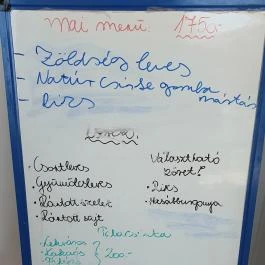 Mai menü: 1750.-
- Zöldséges leves
- Natúr csirke gomba
mártás
- Rizs
Vacsora:
• Csontleves
• Gyümölcsleves
• Rántott szelet
• Rántott sajt
Választható
köret:
• Rizs
• Hasábburgonya
Palacsinta
• Lekváros
• Kakaós
200.-